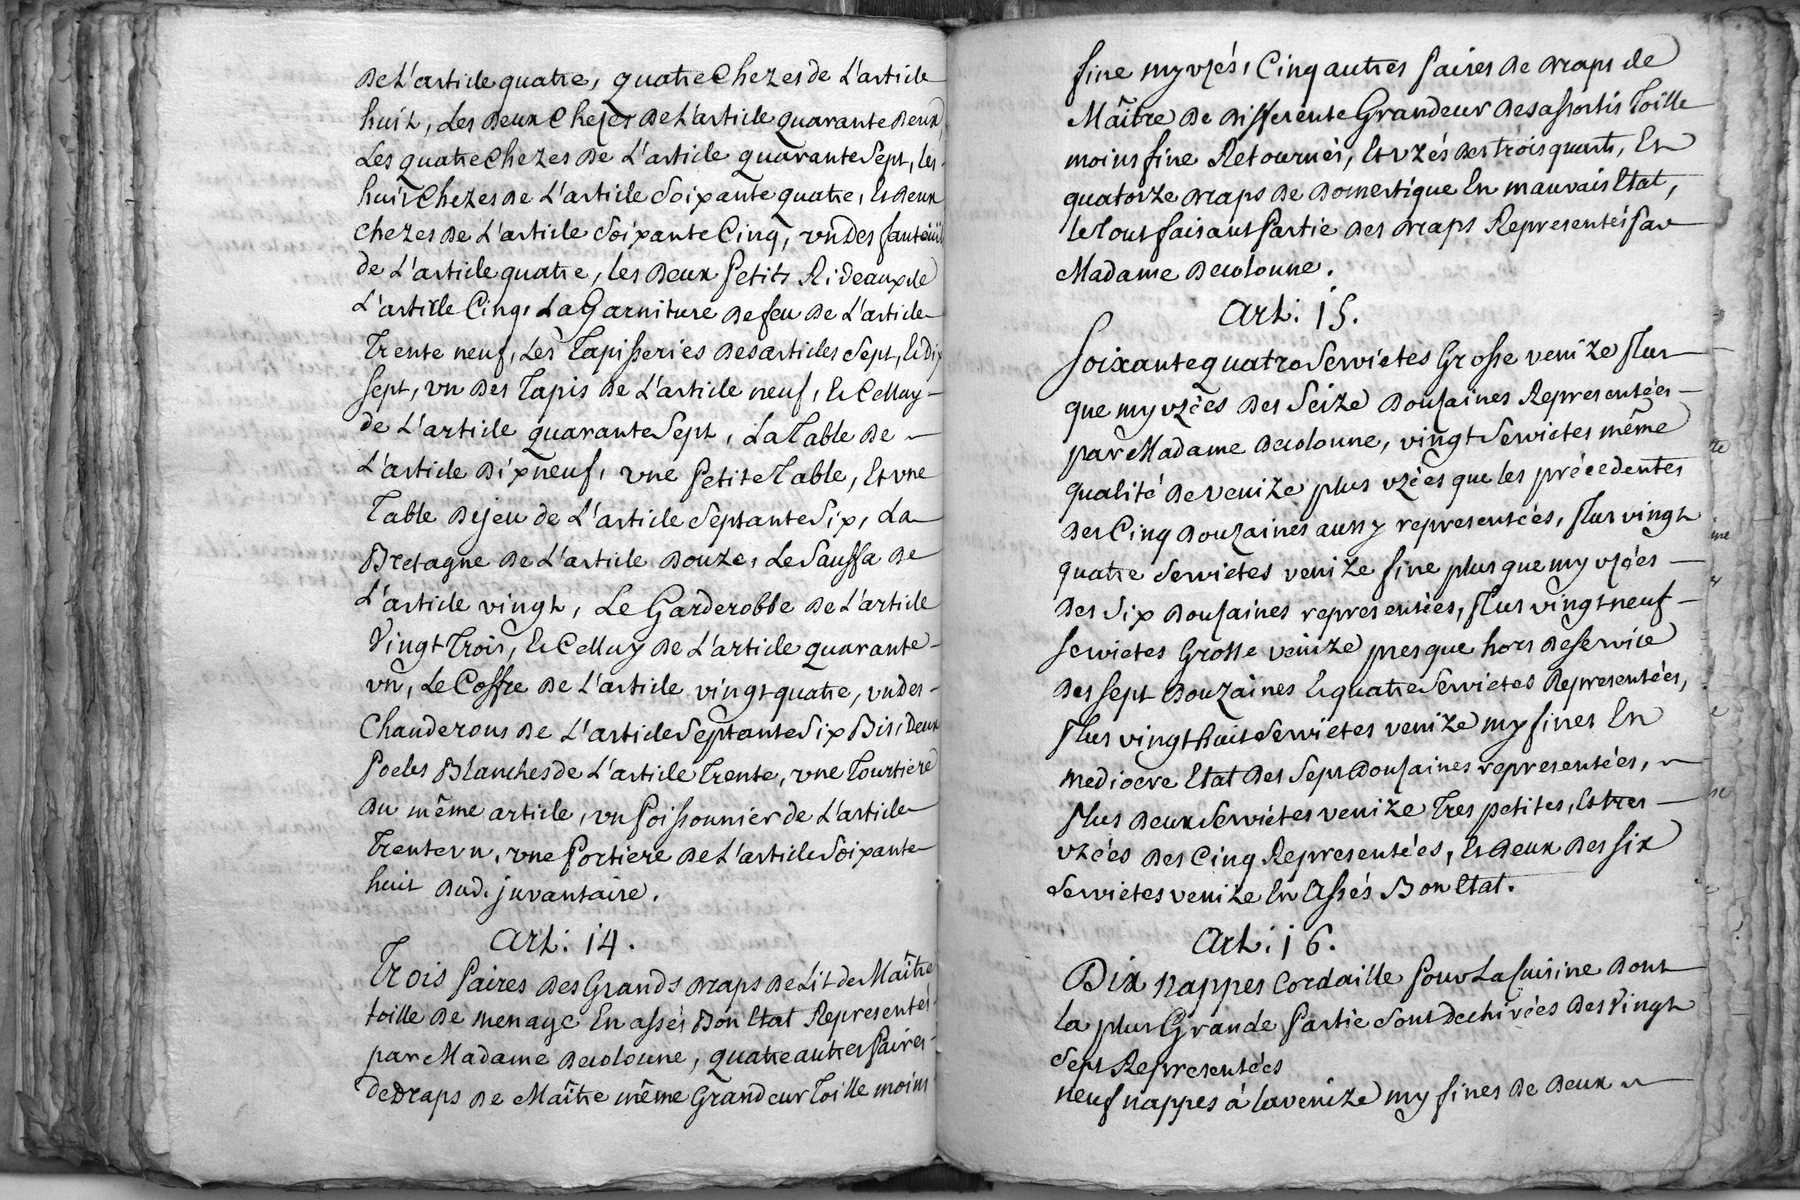 de L'article quatre, quatre Chezes de L'article
huit, Les deux Chezes de L'article quarante deux,
Les quatre Chezes de L'article quarante Sept, les
huit Chezes de L'article Soixante quatre, Et deux
chezes de L'article Soixante Cinq, un des fauteüils
de L'article quatre, les deux petits Rideaux de
L'article Cinq, La Garniture de feu de L'article
Trente neuf, Les Tapisseries des articles Sept, Et dix
Sept, un des Tapis de L'article neuf, Et Celluy
de L'article quarante Sept, La Table de
L'article dix neuf, une petite Table, Et une
Table de jeu de L'article Septante Six, La
Bretagne de L'article douze, Le Sauffa de
L'article vingt, Le Garderobbe de L'article
Vingt Trois, Et Celluy de L'article quarante
un, Le Coffre de L'article vingt quatre, un des
Chauderons de L'article Septante Six Bis, deux
Poeles Blanches de L'article Trente, une Tourtiere
du même article, un Poissonnier de L'article
Trente un, une Portiere de L'article Soixante
huit dud. juvantaire.
Art: 14.
Trois Paires des Grands draps de Lit de Maître
toille de menage En assés Bon Etat Representés
par Madame Decolonne, quatre autres Paires
de draps de Maître même Grandeur Toille moins
fine my uzés, Cinq autres Paires de draps de
Maître de differente Grandeur desassortis Toille
moins fine Retournés, Et uzés des trois quarts, Et
quatorze draps de domestique En mauvais Etat,
le Tout faisant Partie des draps Representés Par
Madame Decolonne.
Art: 15.
Soixante quatre Serviétes Grosse venize Plus
que my uzées des Seize douzaines Representées
par Madame Decolonne, vingt Serviétes même
qualité de venize plus uzées que les précedentes
des Cinq douzaines aussy representées, Plus vingt
quatre Serviétes venize fine plus que my uzées
des Six douzaines representées, Plus vingt neuf
Serviétes Grosse venize presque hors de Service
des Sept douzaines Et quatre Serviétes Representées,
Plus vingt huit Serviétes venize my fines En
mediocre Etat des Sept douzaines representées,
Plus deux Serviétes venize Tres petites, Et tres
uzées des Cinq Representées, Et deux des Six
Serviétes venize En Assés Bon Etat.
Art: 16.
Dix nappes Cordaille Pour La Cuisine dont
la plus Grande Partie Sont dechirées des Vingt
Sept Representées
neuf nappes à la venize my fines de deux